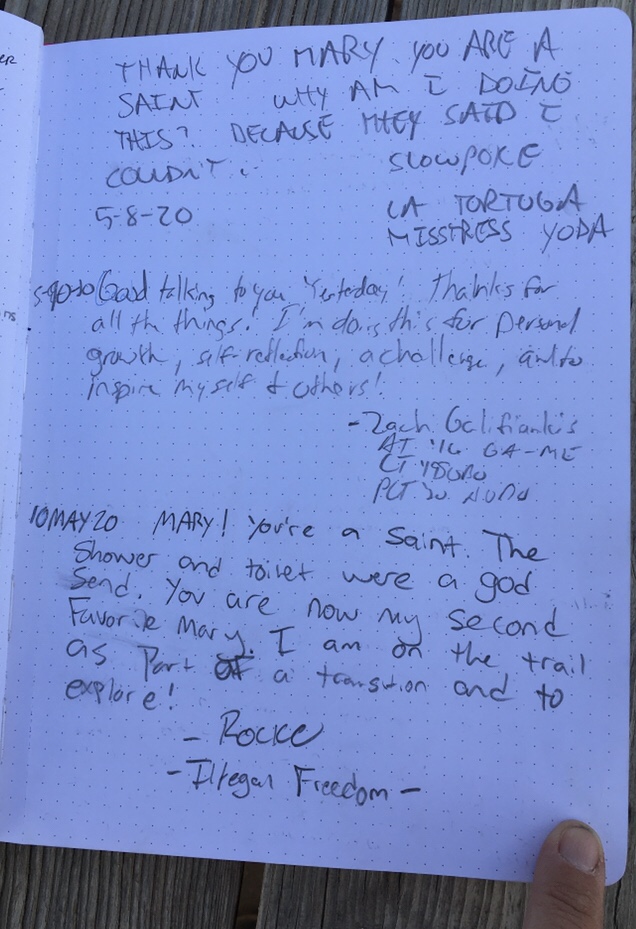 THANK YOU MARY. YOU ARE A
SAINT WHY AM I DOING
THIS? BECAUSE THEY SAID I
COULDN'T.
SLOWPOKE
5-8-20
LA TORTUGA
MISSTRESS YODA
Good talking to you Yesterday! Thanks for
all the things! I'm doing this for personal
growth, self-reflection, a challenge, and to
inspire myself & others!
-Zach Galifianikis
AT '16 GA-ME
CT '18
PCT '20 NOBO
10MAY20 MARY! You're a Saint. The
Shower and toilet were a god
Send. You are now my second
Favorite Mary. I am on the trail
as Part of a transition and to
explore!
- Rocke
- Illegal Freedom -